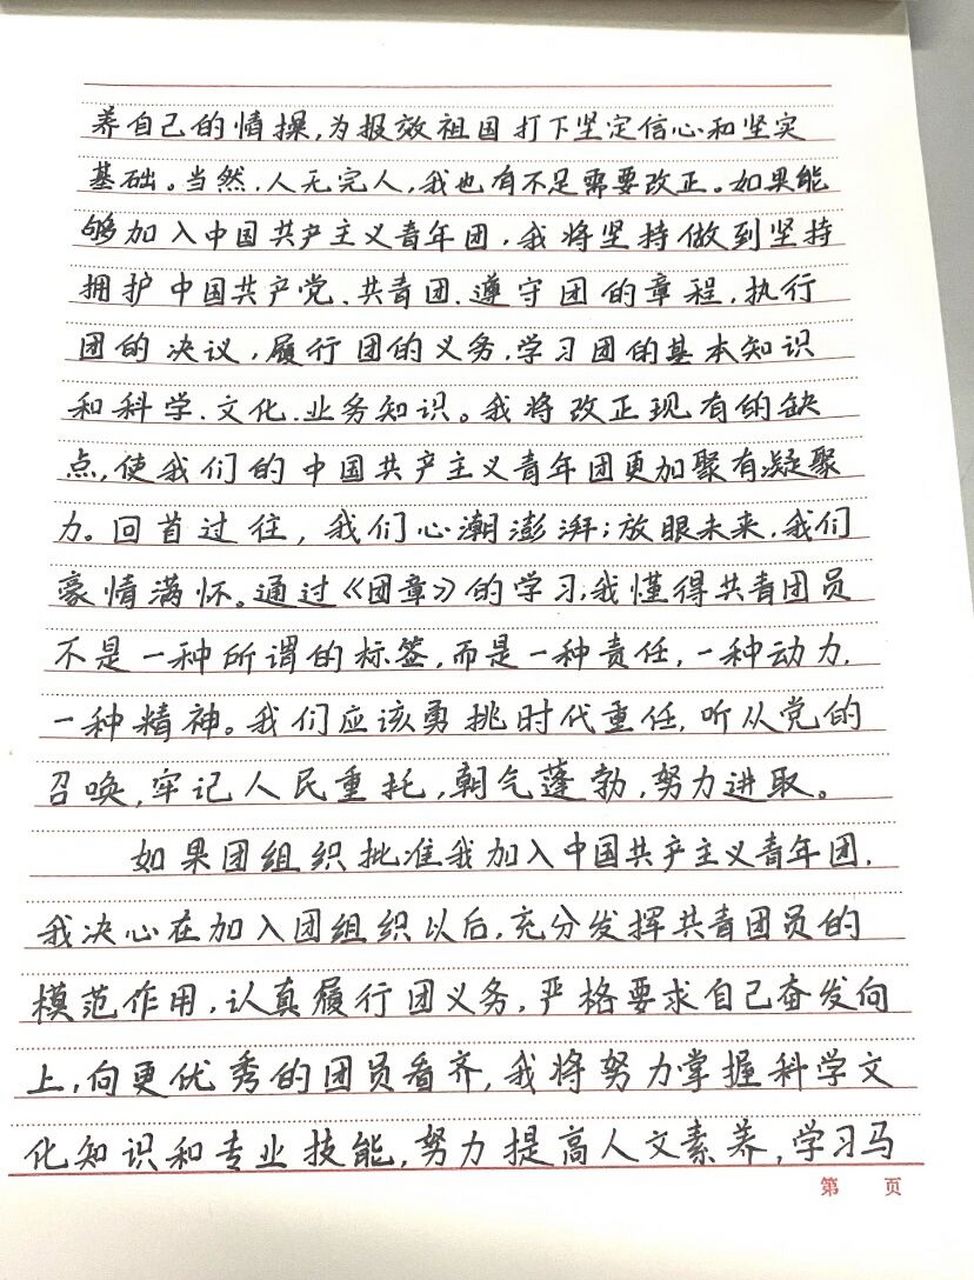 养自己的情操,为报效祖国打下坚定信心和坚实
基础。当然,人无完人,我也有不足需要改正。如果能
够加入中国共产主义青年团,我将坚持做到坚持
拥护中国共产党、共青团、遵守团的章程,执行
团的决议,履行团的义务,学习团的基本知识
和科学、文化、业务知识。我将改正现有的缺
点,使我们的中国共产主义青年团更加聚有凝聚
力。回首过往,我们心潮澎湃;放眼未来,我们
豪情满怀。通过《团章》的学习,我懂得共青团员
不是一种所谓的标签,而是一种责任,一种动力,
一种精神。我们应该勇挑时代重任,听从党的
召唤,牢记人民重托,朝气蓬勃,努力进取。
如果团组织批准我加入中国共产主义青年团,
我决心在加入团组织以后,充分发挥共青团员的
模范作用,认真履行团义务,严格要求自己奋发向
上,向更优秀的团员看齐,我将努力掌握科学文
化知识和专业技能,努力提高人文素养,学习马
第 页